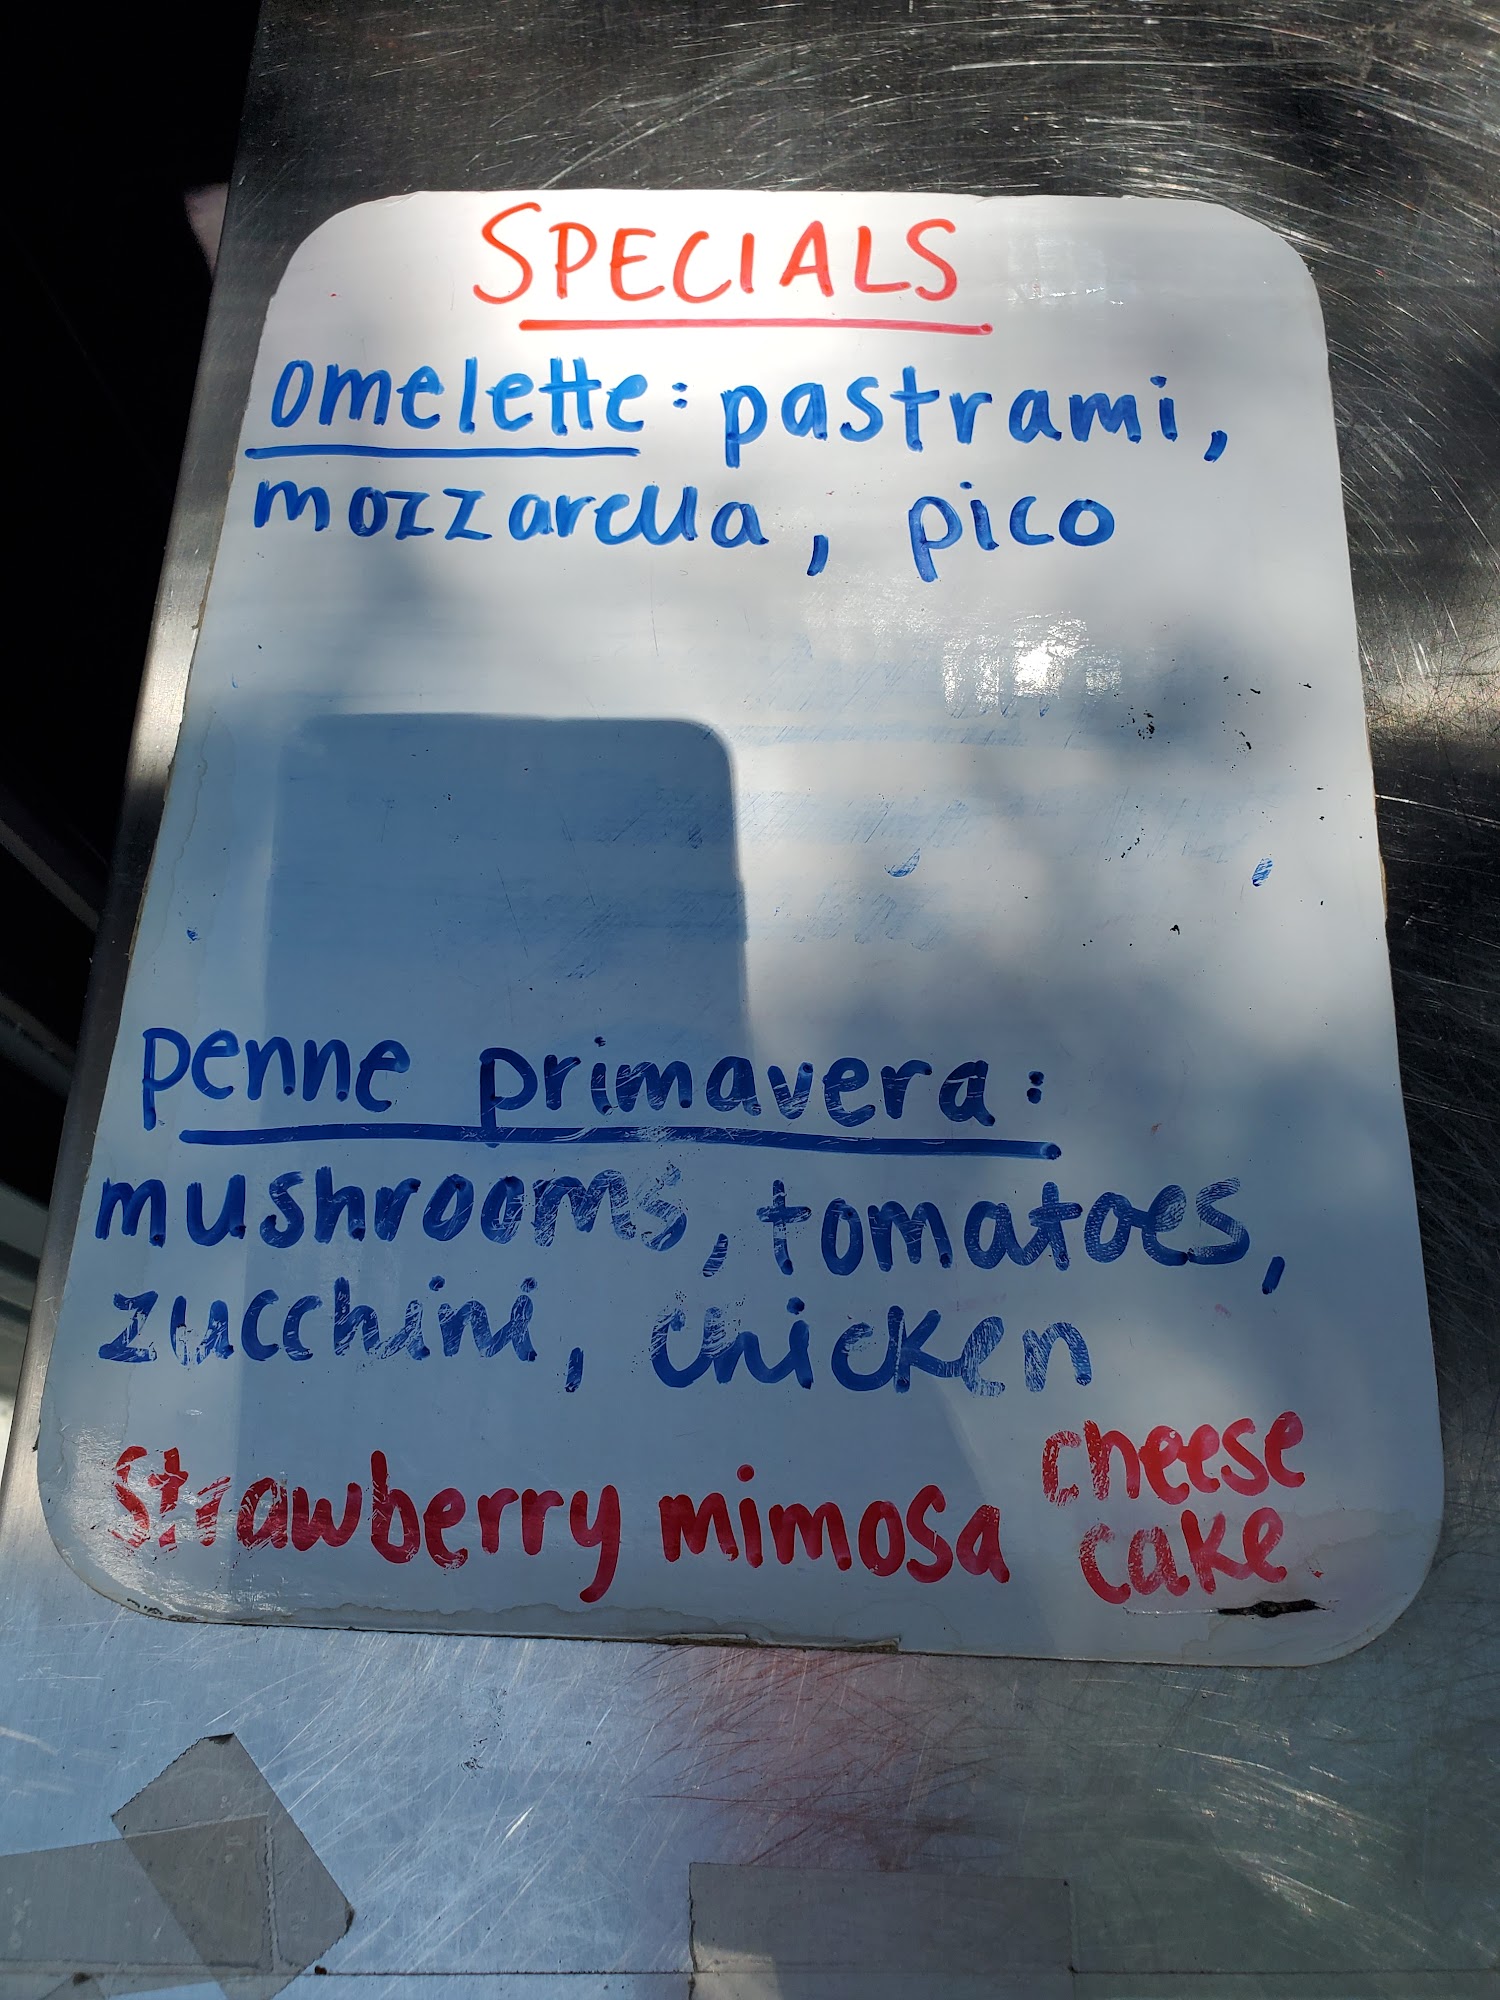 SPECIALS
omelette: pastrami,
mozzarella, pico
penne primavera:
mushrooms, tomatoes,
zucchini, chicken
Strawberry mimosa cheese
cake